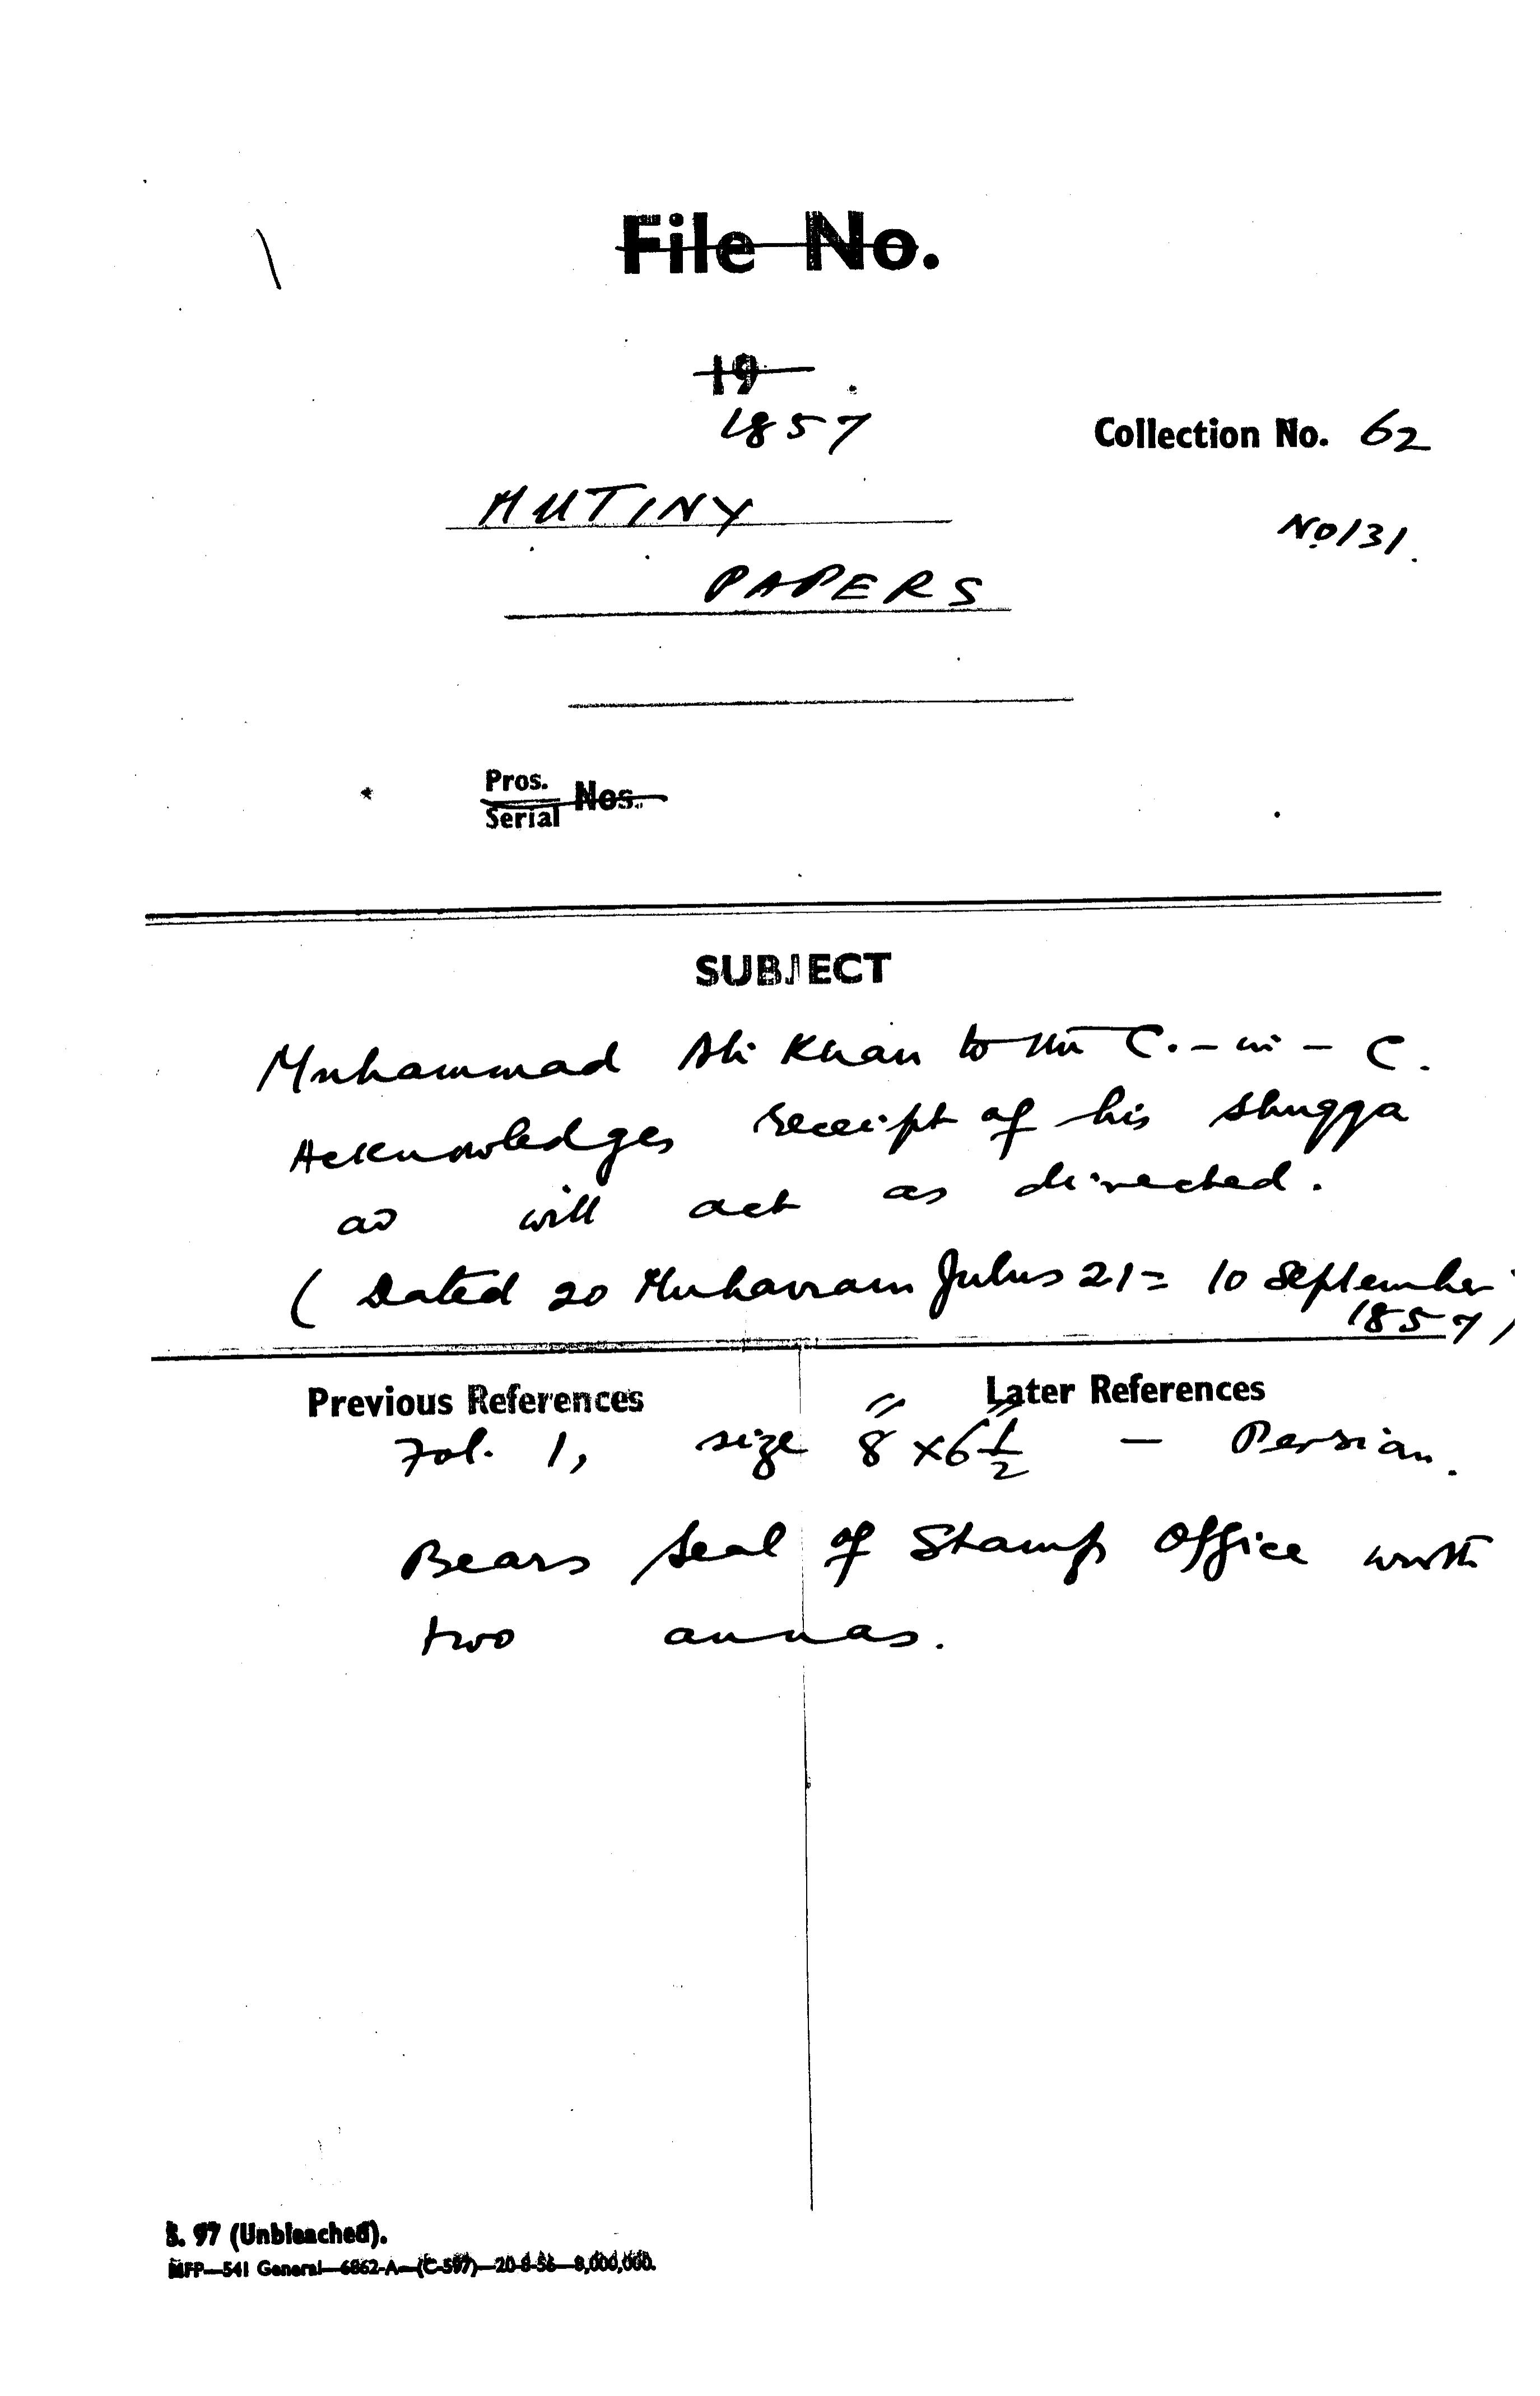 File No.
19
1857
Collection No. 62
MUTINY
No 131.
PAPERS
Pros.
Serial Nos.
SUBJECT
Muhammad Ali Khan to the C.-in-C.
Acknowledges receipt of his shuqqa
as will act as directed.
( Dated 20 Muharram Julus 21= 10 September
1857)
Previous References
Later References
Fol. 1, size 8"×6½" - Persian.
Bears seal of Stamp Office worth
two annas.
S. 97 (Unbleached).
MFP—541 General—6862-A—(C-597)—20-8-56—8,000,000.